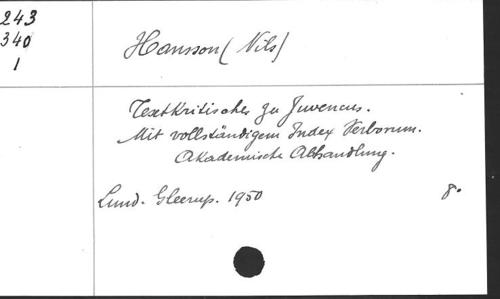 243
340
1
Hansson (Nils)
Textkritisches zu Juvencus.
Mit vollständigem Index Verborum.
Akademische Abhandlung.
Lund. Gleerup. 1950 8°.